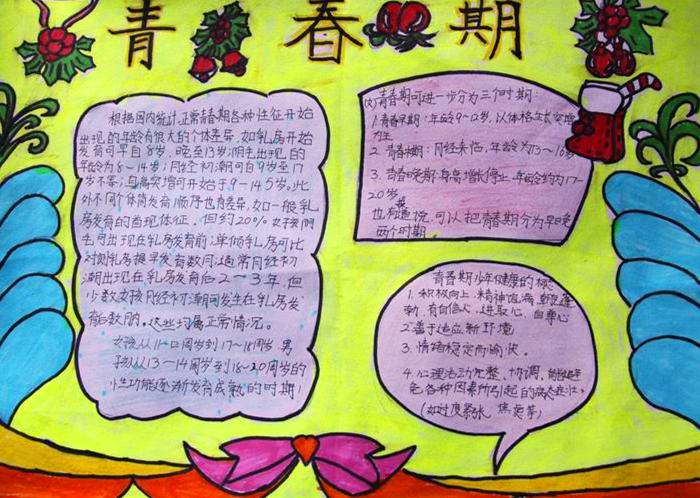 青春期
根据国内统计,正常青春期各种性征开始
出现的年龄有很大的个体差异,如乳房开始
发育可早自8岁,晚至13岁;阴毛出现的
年龄为8~14岁;月经初潮可自9岁至17
岁不等;身高突增可开始于9~14.5岁。此
外不同个体间发育顺序也有差异,如一般乳
房发育的首现体征,但约20%女孩阴
毛可出现在乳房发育前;单侧乳房可比
对侧乳房提早发育数月;通常月经初
潮出现在乳房发育后2~3年,但
少数女孩月经初潮可发生在乳房发
育后数月。这些均属正常情况。
女孩从11~12周岁到17~18周岁 男
孩从13~14周岁到18~20周岁的
性功能逐渐发育成熟的时期!
青春期可进一步分为三个时期:
1.青春早期:年龄9~12岁,以体格生长突增
为主
2. 青春中期:月经来临,年龄为13~16岁
3. 青春晚期:身高增长停止,年龄约为17~
20岁
也有 可以把青春期分为早晚
两个时期
青春期少年健康的标志
1. 积极向上,精神饱满,朝气蓬
勃,有自信心,进取心,自尊心
2.善于适应新环境
3. 情绪稳定而愉快。
4.心理活动完整、协调,能避
免各种因素所引起的病态 性。
(如过度紧张、焦虑等)